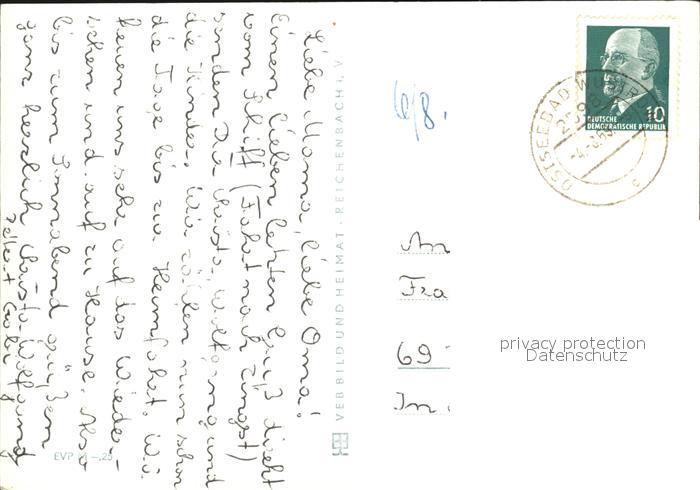 Liebe Mama, liebe Oma!
Einen lieben letzten Gruß direkt
vom Schiff (Fahrt nach Zingst)
senden Die Christa, Wolfgang und
die Kinder. Wir zählen nun schon
die Tage bis zur Heimfahrt. Wir
freuen uns sehr auf das Wieder-
sehen und auf zu Hause. Also
bis zum Sonnabend grüßen
ganz herzlich, Christa, Wolfgang
Gabi
VEB BILD UND HEIMAT · REICHENBACH I. V.
EVP M -,25
6/8.
OSTSEEBAD WUSTR
2598
c
10
DEUTSCHE
DEMOKRATISCHE REPUBLIK
An
Fra
69
In
privacy protection
Datenschutz